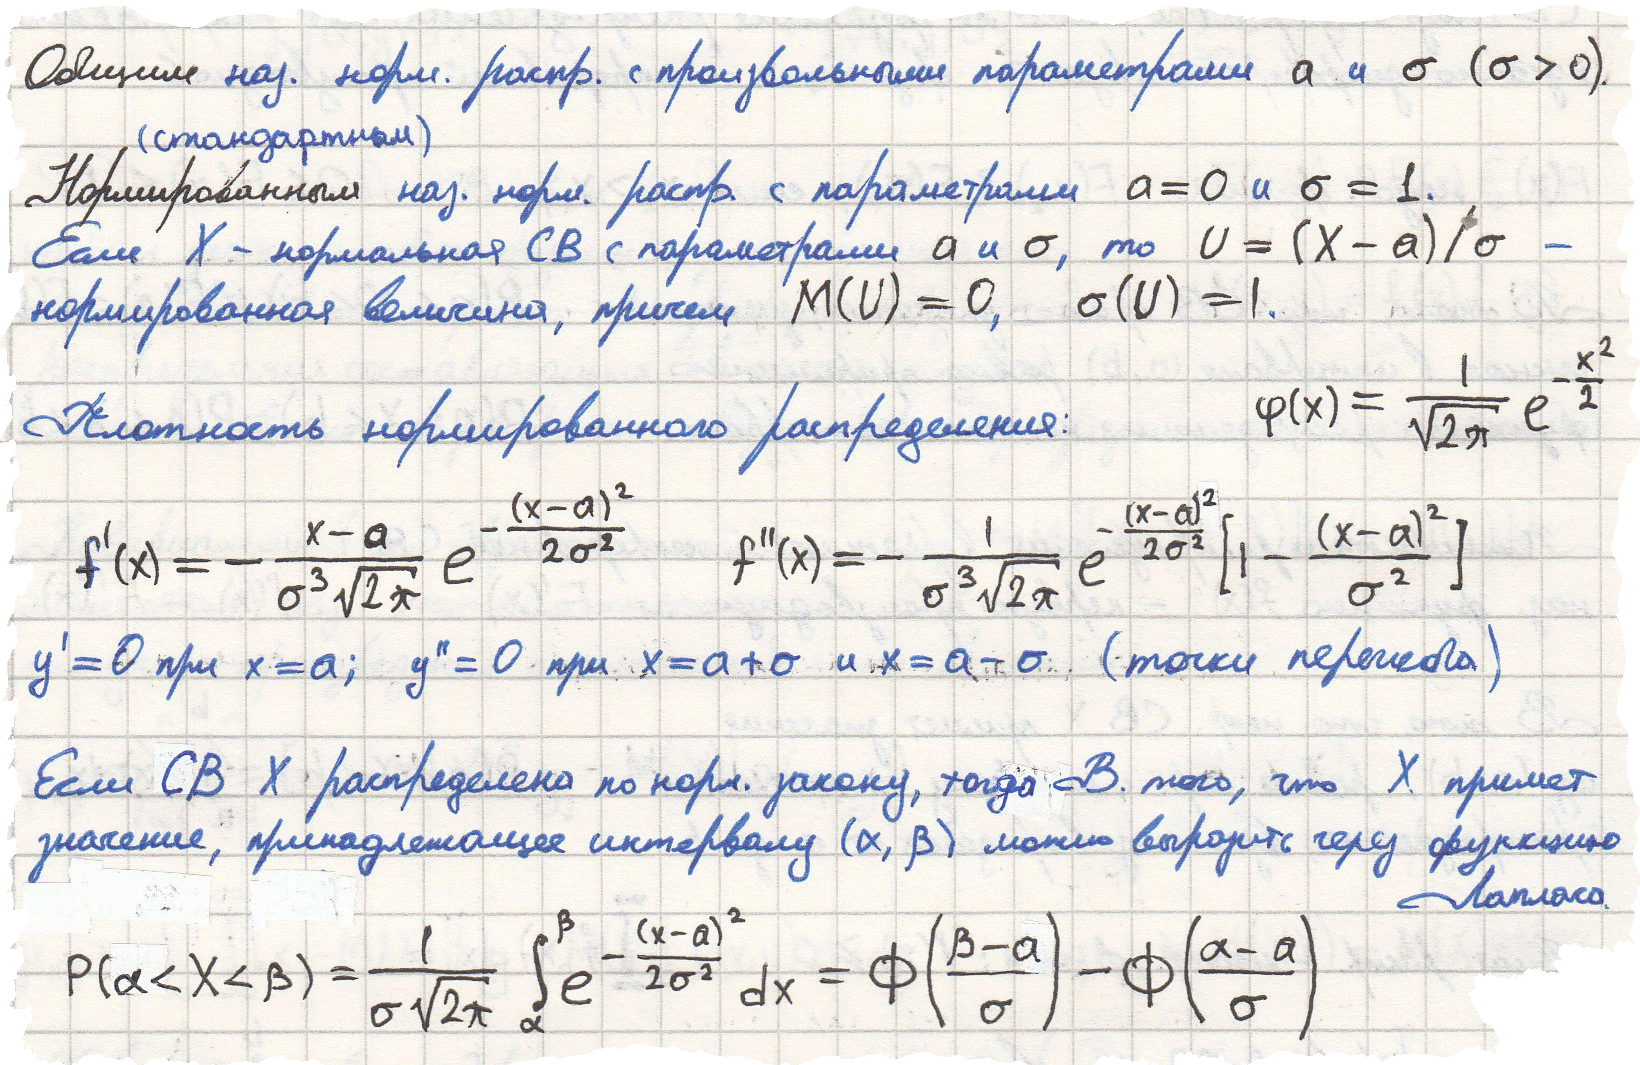 Общим наз. норм. распр. с произвольными параметрами a и σ (σ > 0).
(стандартным)
Нормированным наз. норм. распр. с параметрами a = 0 и σ = 1.
Если X – нормальная СВ с параметрами a и σ, то U = (X – a)/σ –
нормированная величина, причем M(U) = 0, σ(U) = 1.
Плотность нормированного распределения: φ(x) = 1/√(2π) e^(-x²/2)
f'(x) = – (x – a)/(σ³√(2π)) e^(-(x-a)²/(2σ²)) f''(x) = – 1/(σ³√(2π)) e^(-(x-a)²/(2σ²)) [1 – (x-a)²/σ²]
y' = 0 при x = a; y'' = 0 при x = a + σ и x = a – σ (точки перегиба)
Если СВ X распределена по норм. закону, тогда В. того, что X примет
значение, принадлежащее интервалу (α, β) можно выразить через функцию
Лапласа.
P(α < X < β) = 1/(σ√(2π)) ∫_α^β e^(-(x-a)²/(2σ²)) dx = Φ((β – a)/σ) – Φ((α – a)/σ)